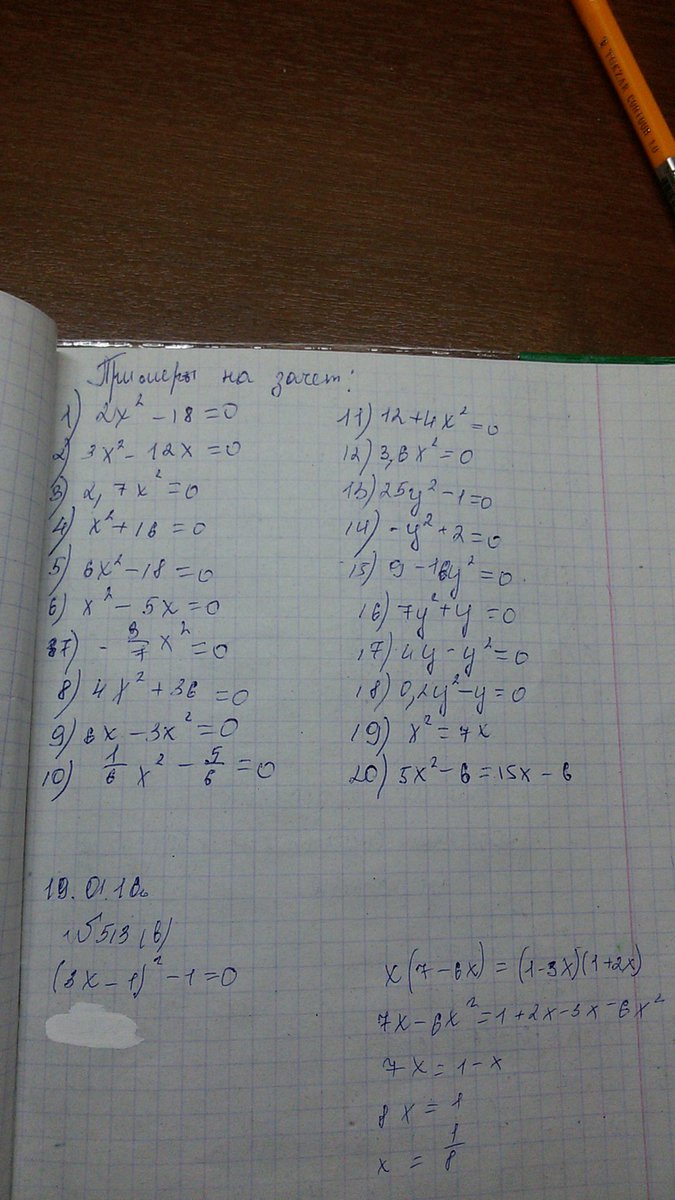 Примеры на зачет:
1) 2x² - 18 = 0
2) 3x² - 12x = 0
3) 2,7x² = 0
4) x² + 16 = 0
5) 6x² - 18 = 0
6) x² - 5x = 0
7) - 3/7 x² = 0
8) 4x² + 36 = 0
9) 6x - 3x² = 0
10) 1/6 x² - 5/6 = 0
11) 12 + 4x² = 0
12) 3,6x² = 0
13) 25y² - 1 = 0
14) -y² + 2 = 0
15) 9 - 16y² = 0
16) 7y² + y = 0
17) 4y - y² = 0
18) 0,2y² - y = 0
19) x² = 7x
20) 5x² - 6 = 15x - 6
19.01.16.
№513 (в)
(3x - 1)² - 1 = 0
x(7 - 6x) = (1 - 3x)(1 + 2x)
7x - 6x² = 1 + 2x - 3x - 6x²
7x = 1 - x
8x = 1
x = 1/8